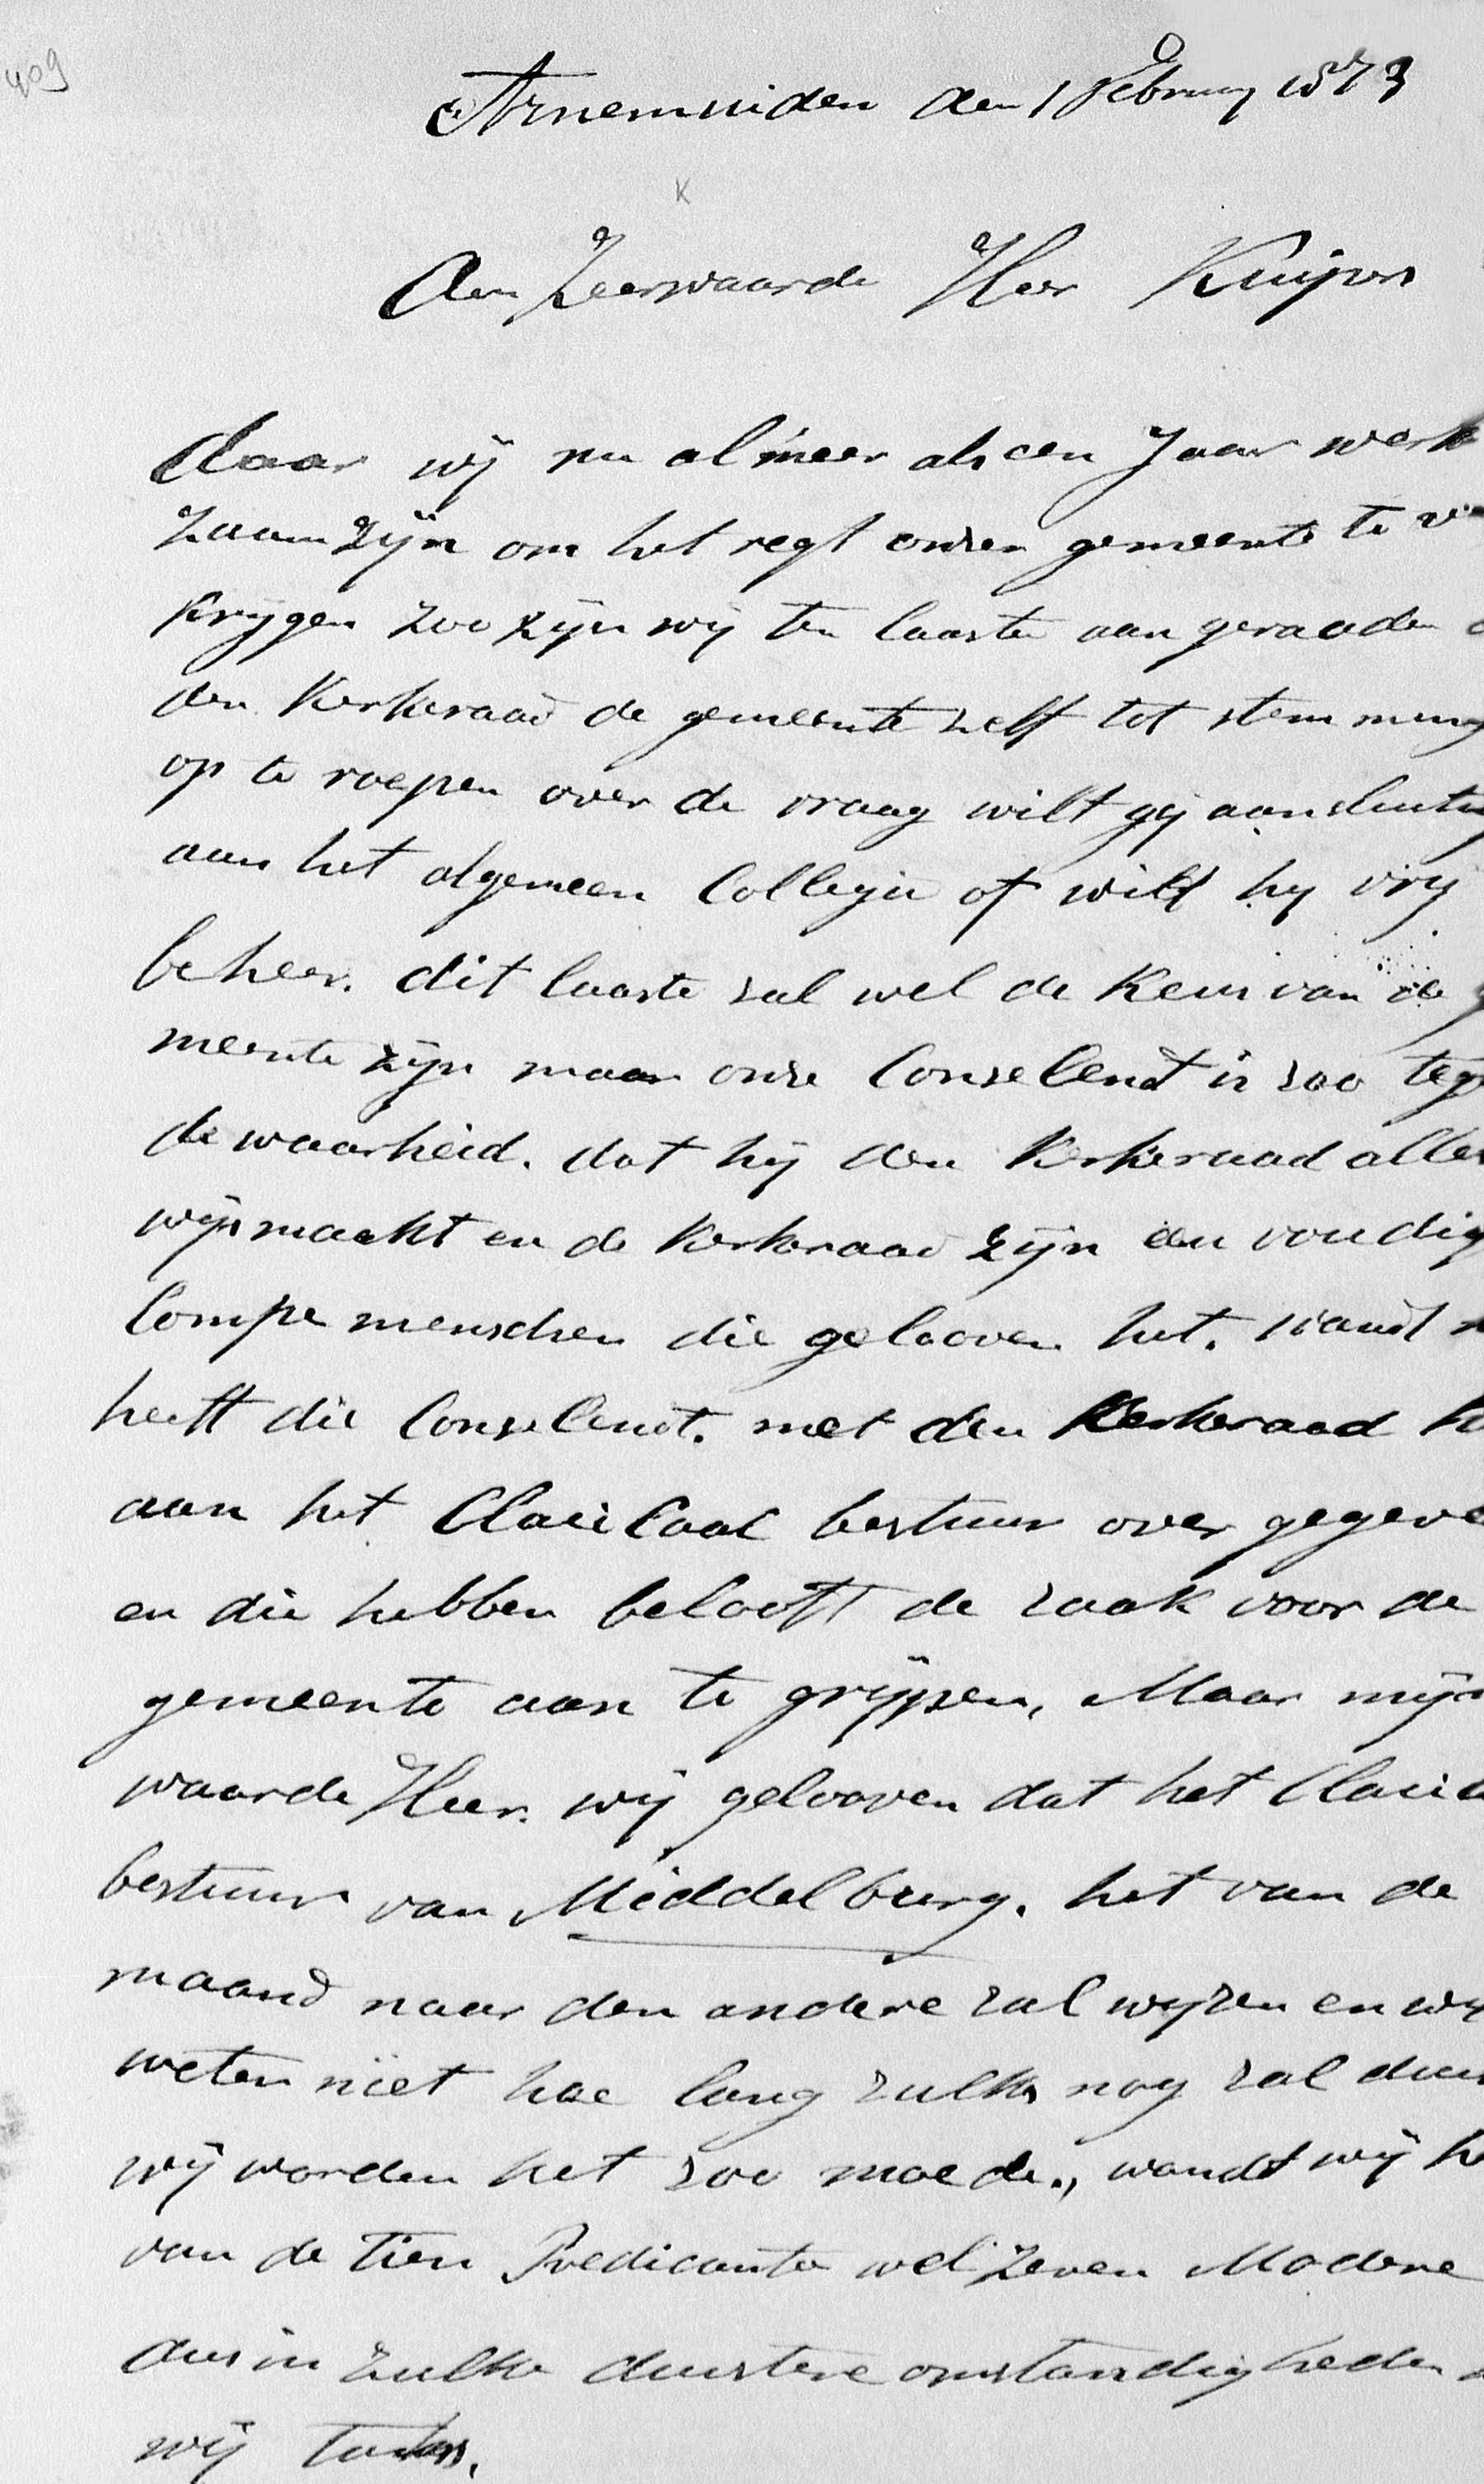 409
Arnemuiden den 1 Februarij 1873
K
Aen Zeerwaarde Heer Kuijpers
daar wij nu al meer als een Jaar werk
zaam zijn om het regt onser gemeente te
krijgen zoo zijn wij ten laaste aan geraaden
den Kerkeraad de gemeente zelf tot stemming
op te roepen over de vraag wilt gij aansluiting
aan het algemeen Collegie of wilt hij vrij
beheer. dit laaste zal wel de keus van de
meente zijn maar onse Conselent is zoo tegen
de waarheid. dat hij den Kerkeraad alles
wijsmaakt en de Kerkeraad zijn een voudig
lompe menschen die gelooven het.
heeft die Conselent. met den Kerkeraad
aan het Clasicaal bestuur over gegeve
en die hebben belooft de zaak voor de
gemeente aan te grijpen, Maar mijn
waarde Heer. wij gelooven dat het
bestuur van Middelburg. het van de
maand naar den andere zal wijzen en wij
weten niet hoe lang zulks nog zal duur
wij worden het zoo moede., wandt wij
van de tien Predicante wel zeven Moderne
dus in zulke duustere omstandigheden
wij